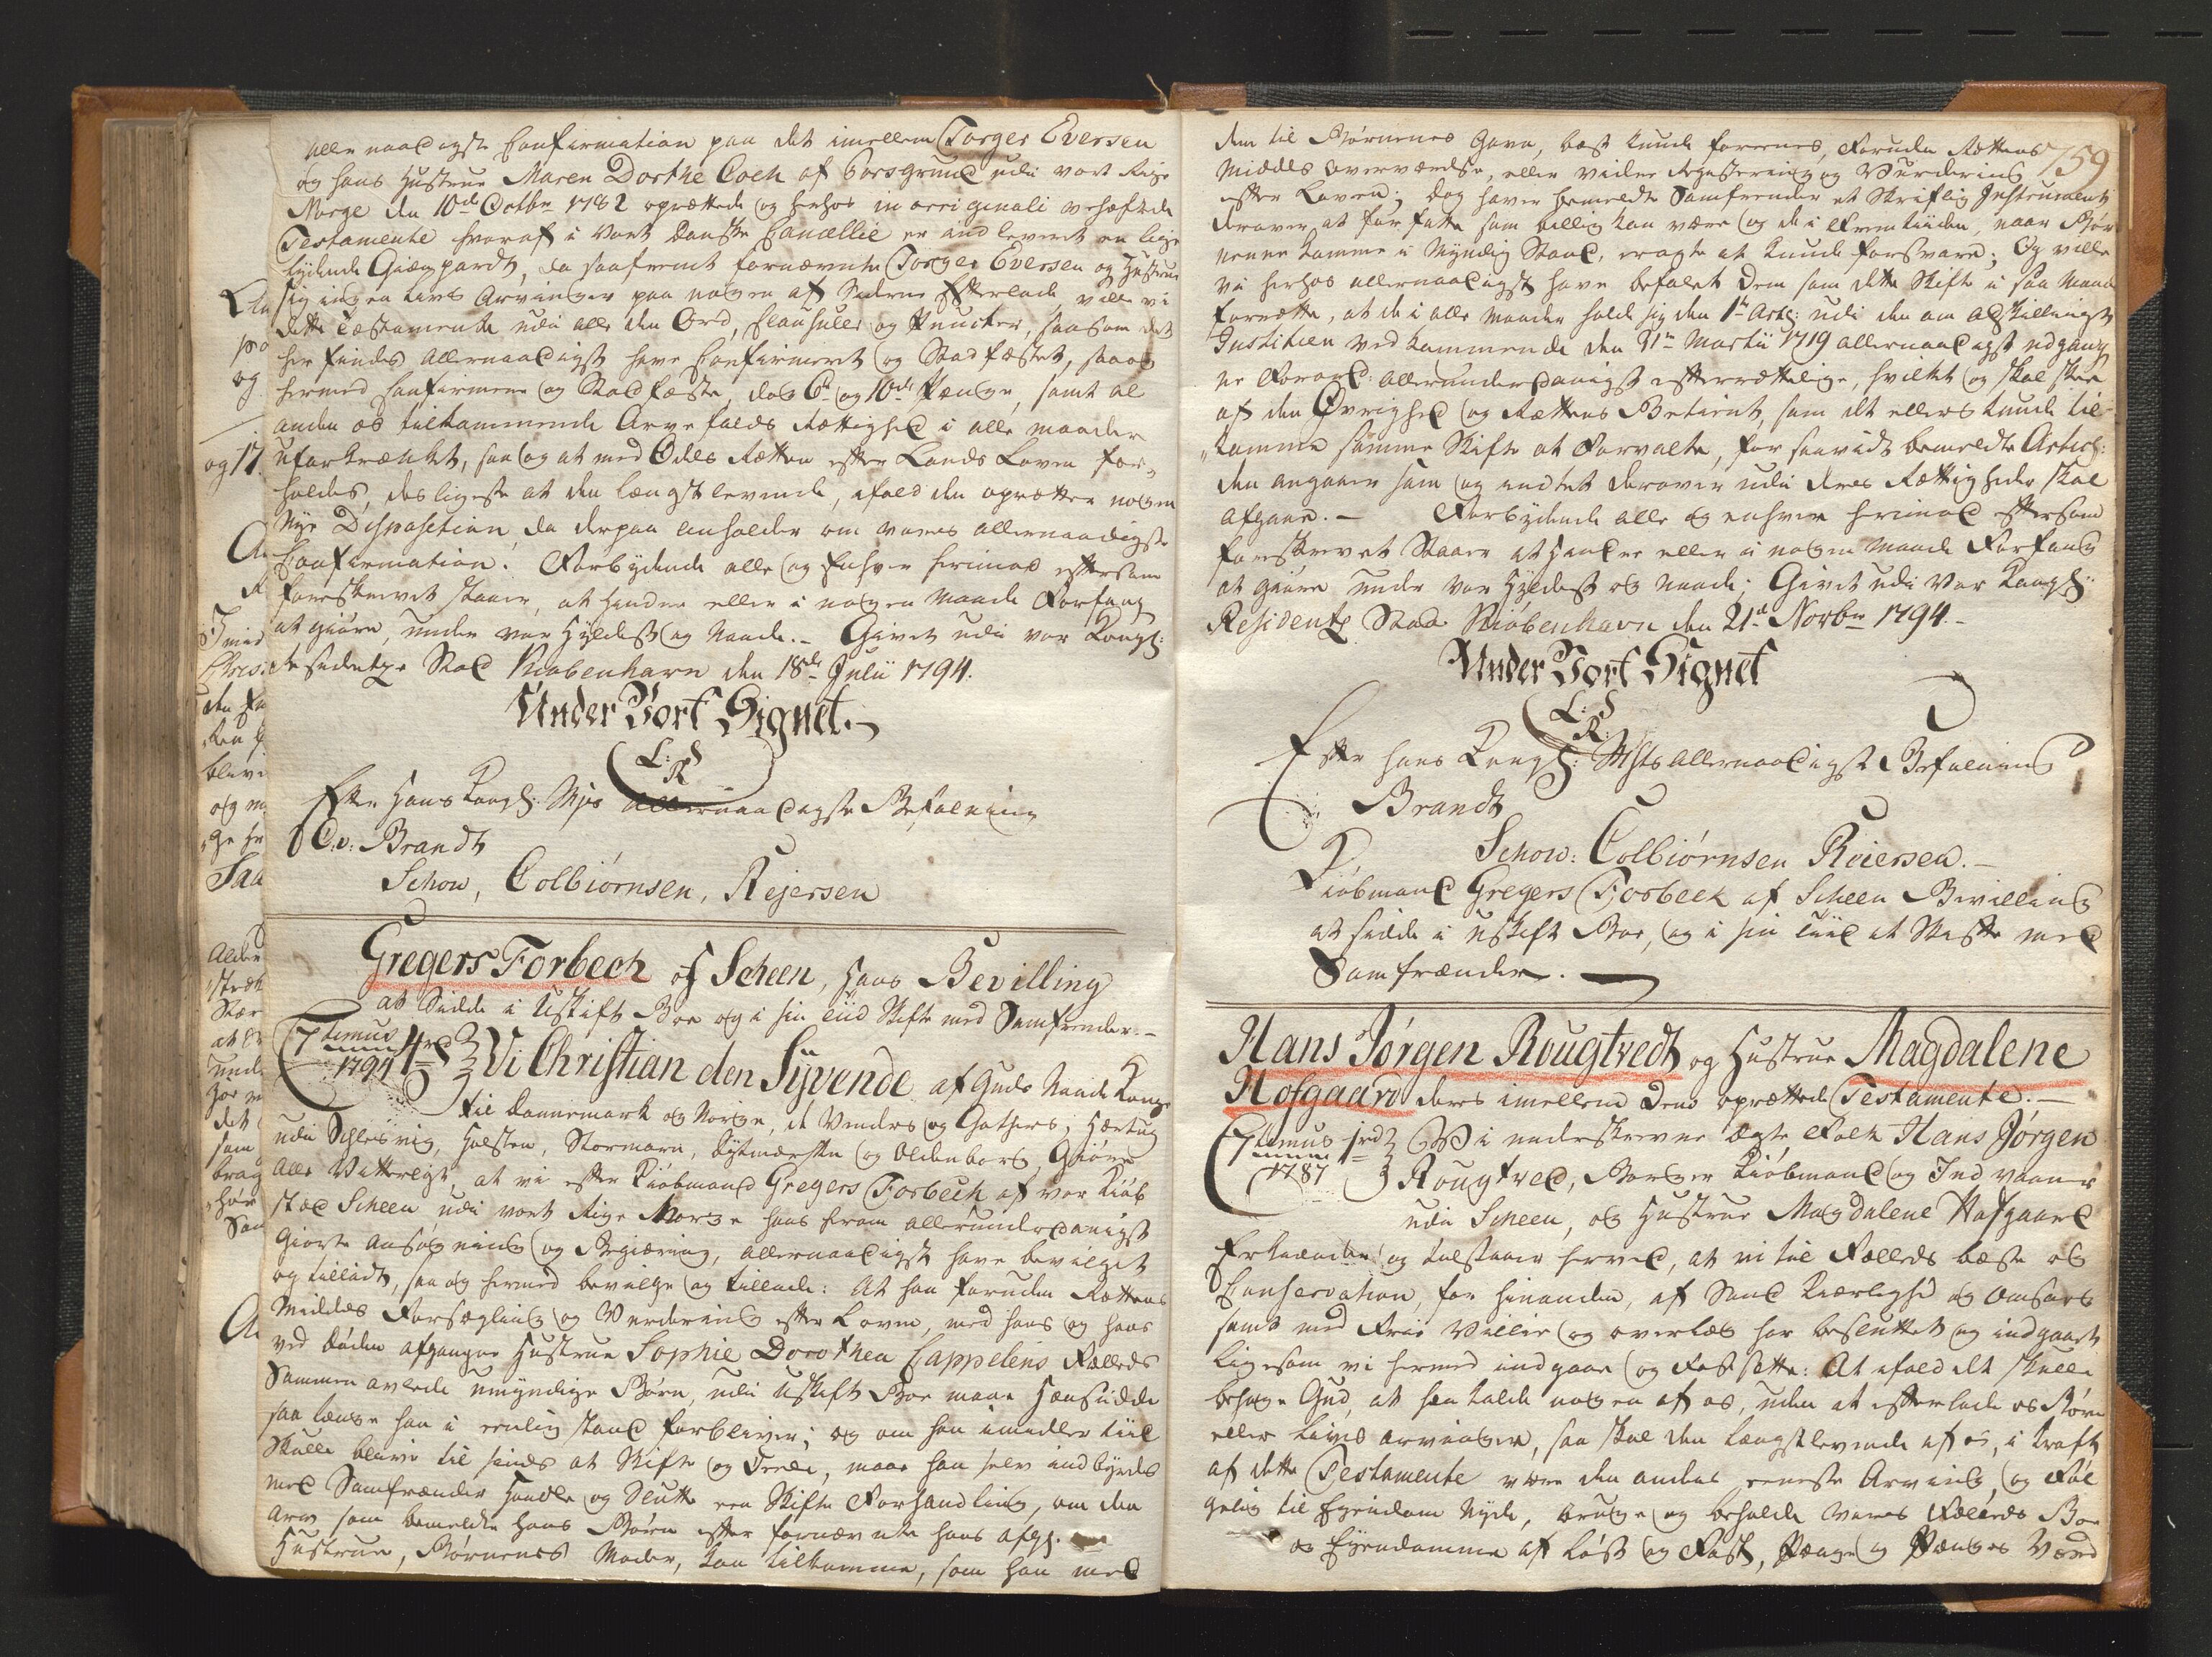 aller naadigste Confirmation paa det imellem Torger Eversen
og hans Hustrue Maren Dorthe Coch af Porsgrund udi vort Rige
Norge den 10de Octbr 1782 oprættede og herhos in originali vehæftede
Testamente hvoraf i Vort danske Cancellie er indleveret en lige
lydende Gienpardt, da saafremt fornævnte Torger Eversen og Hustrue
sig ingen Livs Arvinger paa nogen af Siderne Efterlade ville vi
dette Testamente udi alle den Ord, Clausuler og Puncter, saasom det
her findes allernaadigst have Confirmeret og Stadfæstet, saa og
hermed Confirmere og Stadfæste, dog 6te og 10de Penge, samt al
anden os tilkommende Arvefalds Rettighed i alle maader
uforkrænket, saa og at med Odels Retten efter Lands Loven for-
holdes, desligeste at den længstlevende, ifald den opretter nogen
Nye Disposition, da derpaa anholder om vores allernaadigste
Confirmation. Forbydende alle og Enhver herimod eftersom
foreskrevet staaer, at hindre eller i nogen Maade Forfang
at giøre, under vor Hyldest og Naade.- Givet udi vor Kongl:
Residentze Stad Kiøbenhavn den 18de Julii 1794.
Under Vort Signet.
L: S
R
Efter Hans Kongl: Mjts allernaadigste Befalning
C: v: Brandt
Schow, Colbiørnsen, Rejersen
Gregers Forbech af Scheen, Hans Bevilling
at Sidde i Uskift Boe og i sin tiid Skifte med Samfrender.-
7temus
1794
Vi Christian den Syvende af Guds Naade Konge
til Dannemark og Norge, de Venders og Gothers, Hertug
udi Schlesvig, Holsten, Stormarn, Dytmersken og Oldenborg, Giøre
Alle Vitterligt, at vi efter Kiøbmand Gregers Forbech af vor Kiøb
stad Scheen udi vort Rige Norge hans herom allerunderdanigst
giorte ansøgning og Begiæring, allernaadigst have bevilget
og tilladt, saa og hermed bevilge og tillade: At han foruden Rettens
Middels Forsegling og Vurdering efter Loven, med hans og hans
ved døden afgangne Hustrue Sophie Dorothea Cappelens Fælleds
Sammen avlede umyndige Børn, udi Uskift Boe maae Hensidde
saa længe han i eenlig stand forbliver; og om han imidlertiid
Skulle blive til sinds at Skifte og Deele, maae han selv indbyrdes
med Samfrænder Handle og Slutte een Skifte Forhandling, om den
arv som bemeldte hans Børn efter fornævnte hans afg:
Hustrue, Børnenes Moder, kan tilkomme, som han med
759
dem til Børnenes Gavn, best kunde forenes, Foruden Rettens
Middels Overværelse, eller videre Registering og Vurdering
efter Loven; dog haver bemeldte Samfrender et Skriftlig Instrument
derover at forfatte som billig kan være og de i Fremtiiden, naar Bør
nene komme i Myndig Stand, eragte at kunde forsvare; Og ville
vi herhos allernaadigst have befalet dem som dette Skifte i saa Maade
forrette, at de i alle Maader holde sig den 1te Art: udi den om adskillige
Justitien vedkommende den 31te Martii 1719 allernaadigst udgang
ne Forord: allerunderdanigst efterrettelige, hvilket og skal skee
af den Øvrighed og Rettens Betient, som det ellers kunde til-
komme samme Skifte at Forvalte, for saavidt bemeldte Articl:
den angaaer som og andtet derover udi deres Rettigheder skal
afgaae. - Forbydende alle og enhver herimod eftersom
foreskrevet staaer at Hindre eller i nogen Maade Forfang
at giøre under vor Hyldest og Naade; Givet udi Vor Kongl:
Residentz Stad Kiøbenhavn den 21de Novbr 1794.-
Under Vort Signet
L: S
R:
Efter Hans Kongl: Mjts allernaadigste Befalning
Brandt
Schow: Colbiørnsen Reiersen.-
Kiøbmand Gregers Forbech af Scheen Bevilling
at sidde i Uskift Boe, og i sin tiid at Skifte med
Samfrænder.
Hans Jørgen Rougtvedt og Hustrue Magdalene
Hofgaard deres imellem dem oprettede Testamente.-
7temus
1787
Vi underskrevne Egte Folk Hans Jørgen
Rougtved, Borger Kiøbmand og Indvaaner
udi Scheen, og Hustrue Magdalene Hofgaard
Erkiender og tilstaaer herved, at vi til Fælleds beste og
Conservation, for hinanden, af Sand Kierlighed og Omsorg
samt med Frie Villie og overlæg har besluttet og indgaaet
ligesom vi hermed indgaae og Fastsette: At ifald det skulle
behage Gud, at han kalde nogen af os, uden at efterlade os Børn
eller Livs arvinger, saa skal den længstlevende af os, i Kraft
af dette Testamente være den andens eeneste Arving, og Føl
gelig til Ejendom Nyde, bruge og beholde vores Fælleds Boe
og Ejendomme af Løst og Fast, Penge og Penges Værd